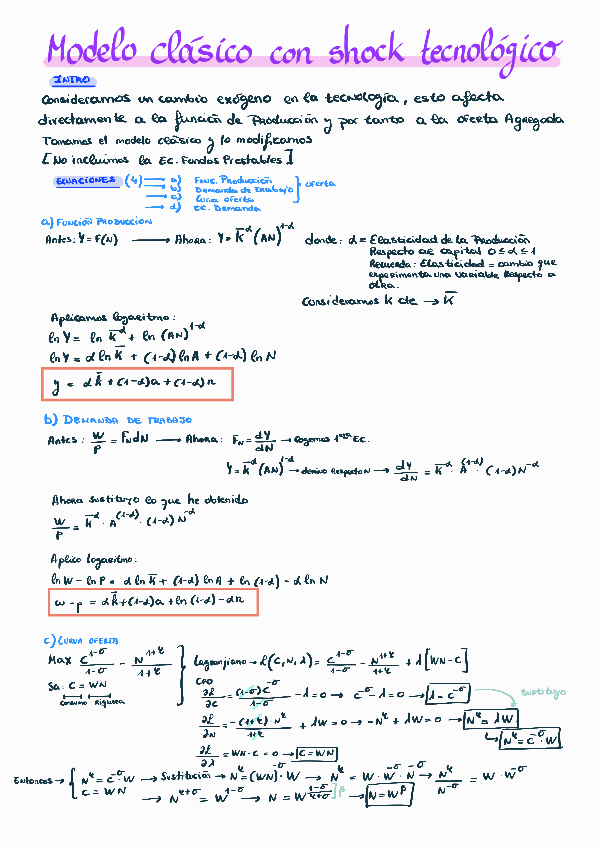 Modelo clásico con shock tecnológico
INTRO
Consideramos un cambio exógeno en la tecnología, esto afecta
directamente a la función de Producción y por tanto a la oferta Agregada
Tomamos el modelo clásico y lo modificamos
[No incluimos la Ec. Fondos Prestables]
ECUACIONES (4) → a) Func. Producción
→ b) Demanda de Trabajo
→ c) Curva oferta
→ d) Ec. Demanda
oferta
a) FUNCIÓN PRODUCCION
Antes: Y = F(N) → Ahora: Y = K̄^α (AN)^(1-α) donde: α = Elasticidad de la Producción
Respecto al capital 0 ≤ α ≤ 1
Recuerda: Elasticidad = cambio que
experimenta una variable Respecto a
otra.
Consideramos K cte → K̄
Aplicamos logaritmo:
ln Y = ln K̄^α + ln (AN)^(1-α)
ln Y = α ln K̄ + (1-α) ln A + (1-α) ln N
y = α k̄ + (1-α)a + (1-α)n
b) DEMANDA DE TRABAJO
Antes: W/P = F_N dN → Ahora: F_N = dY/dN → Cogemos 1ª Ec.
Y = K̄^α (AN)^(1-α) → derivo Respecto N → dY/dN = K̄^α · A^(1-α) · (1-α) N^-α
Ahora sustituyo lo que he obtenido
W/P = K̄^α · A^(1-α) · (1-α) N^-α
Aplico logaritmo:
ln W - ln P = α ln K̄ + (1-α) ln A + ln (1-α) - α ln N
w - p = α k̄ + (1-α)a + ln (1-α) - αn
c) CURVA OFERTA
Max C^(1-σ)/(1-σ) - N^(1+φ)/(1+φ)
Sa: C = WN
Consumo Riqueza
Lagrangiano → L(C,N,λ) = C^(1-σ)/(1-σ) - N^(1+φ)/(1+φ) + λ[WN-C]
CPO
∂L/∂C = (1-σ)C^-σ/(1-σ) - λ = 0 → C^-σ - λ = 0 → λ = C^-σ
Sustituyo
∂L/∂N = -(1+φ) N^φ/(1+φ) + λW = 0 → -N^φ + λW = 0 → N^φ = λW
↳ N^φ = C^-σ · W
∂L/∂λ = WN - C = 0 → C = WN
Entonces → { N^φ = C^-σ · W → Sustitución → N^φ = (WN)^-σ · W → N^φ = W · W^-σ · N^-σ → N^φ/N^-σ = W · W^-σ
C = WN → N^(φ+σ) = W^(1-σ) → N = W^((1-σ)/(φ+σ)) ] β → N = W^β